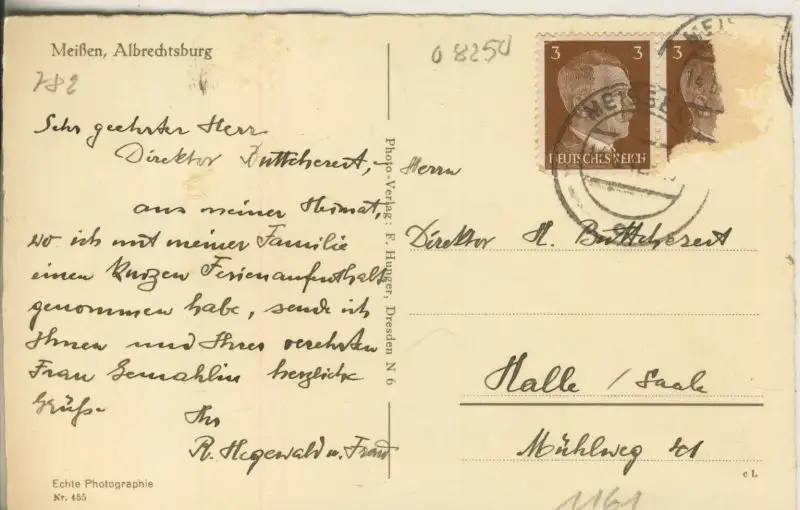 Meißen, Albrechtsburg
782
Sehr geehrter Herr
Direktor Buttchereit,
aus meiner Heimat,
wo ich mit meiner Familie
einen kurzen Ferienaufenthalt
genommen habe, sende ich
Ihnen und Ihrer verehrten
Frau Gemahlin herzliche
Grüße
Ihr
R. Hegewald u. Frau
Echte Photographie
Nr. 455
Photo-Verlag: F. Hunger, Dresden N 6
08250
3 3
DEUTSCHES REICH
3
MEISSEN
Herrn
Direktor H. Buttchereit
Halle / Saale
Mühlweg 41
c L
1161